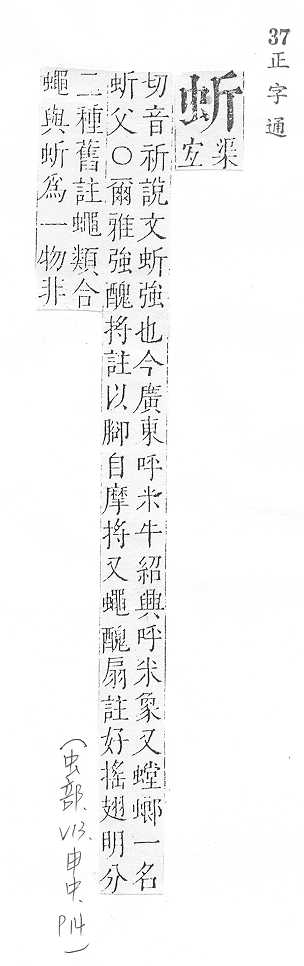 37
正字通
蚚
渠
宐
切音祈說文蚚強也今廣東呼米牛紹興呼米象又螳螂一名
蚚父○爾雅強醜捋註以腳自摩捋又蠅醜扇註好搖翅明分
二種舊註蠅類合
蠅與蚚爲一物非
(虫部、V13.申中、P14)